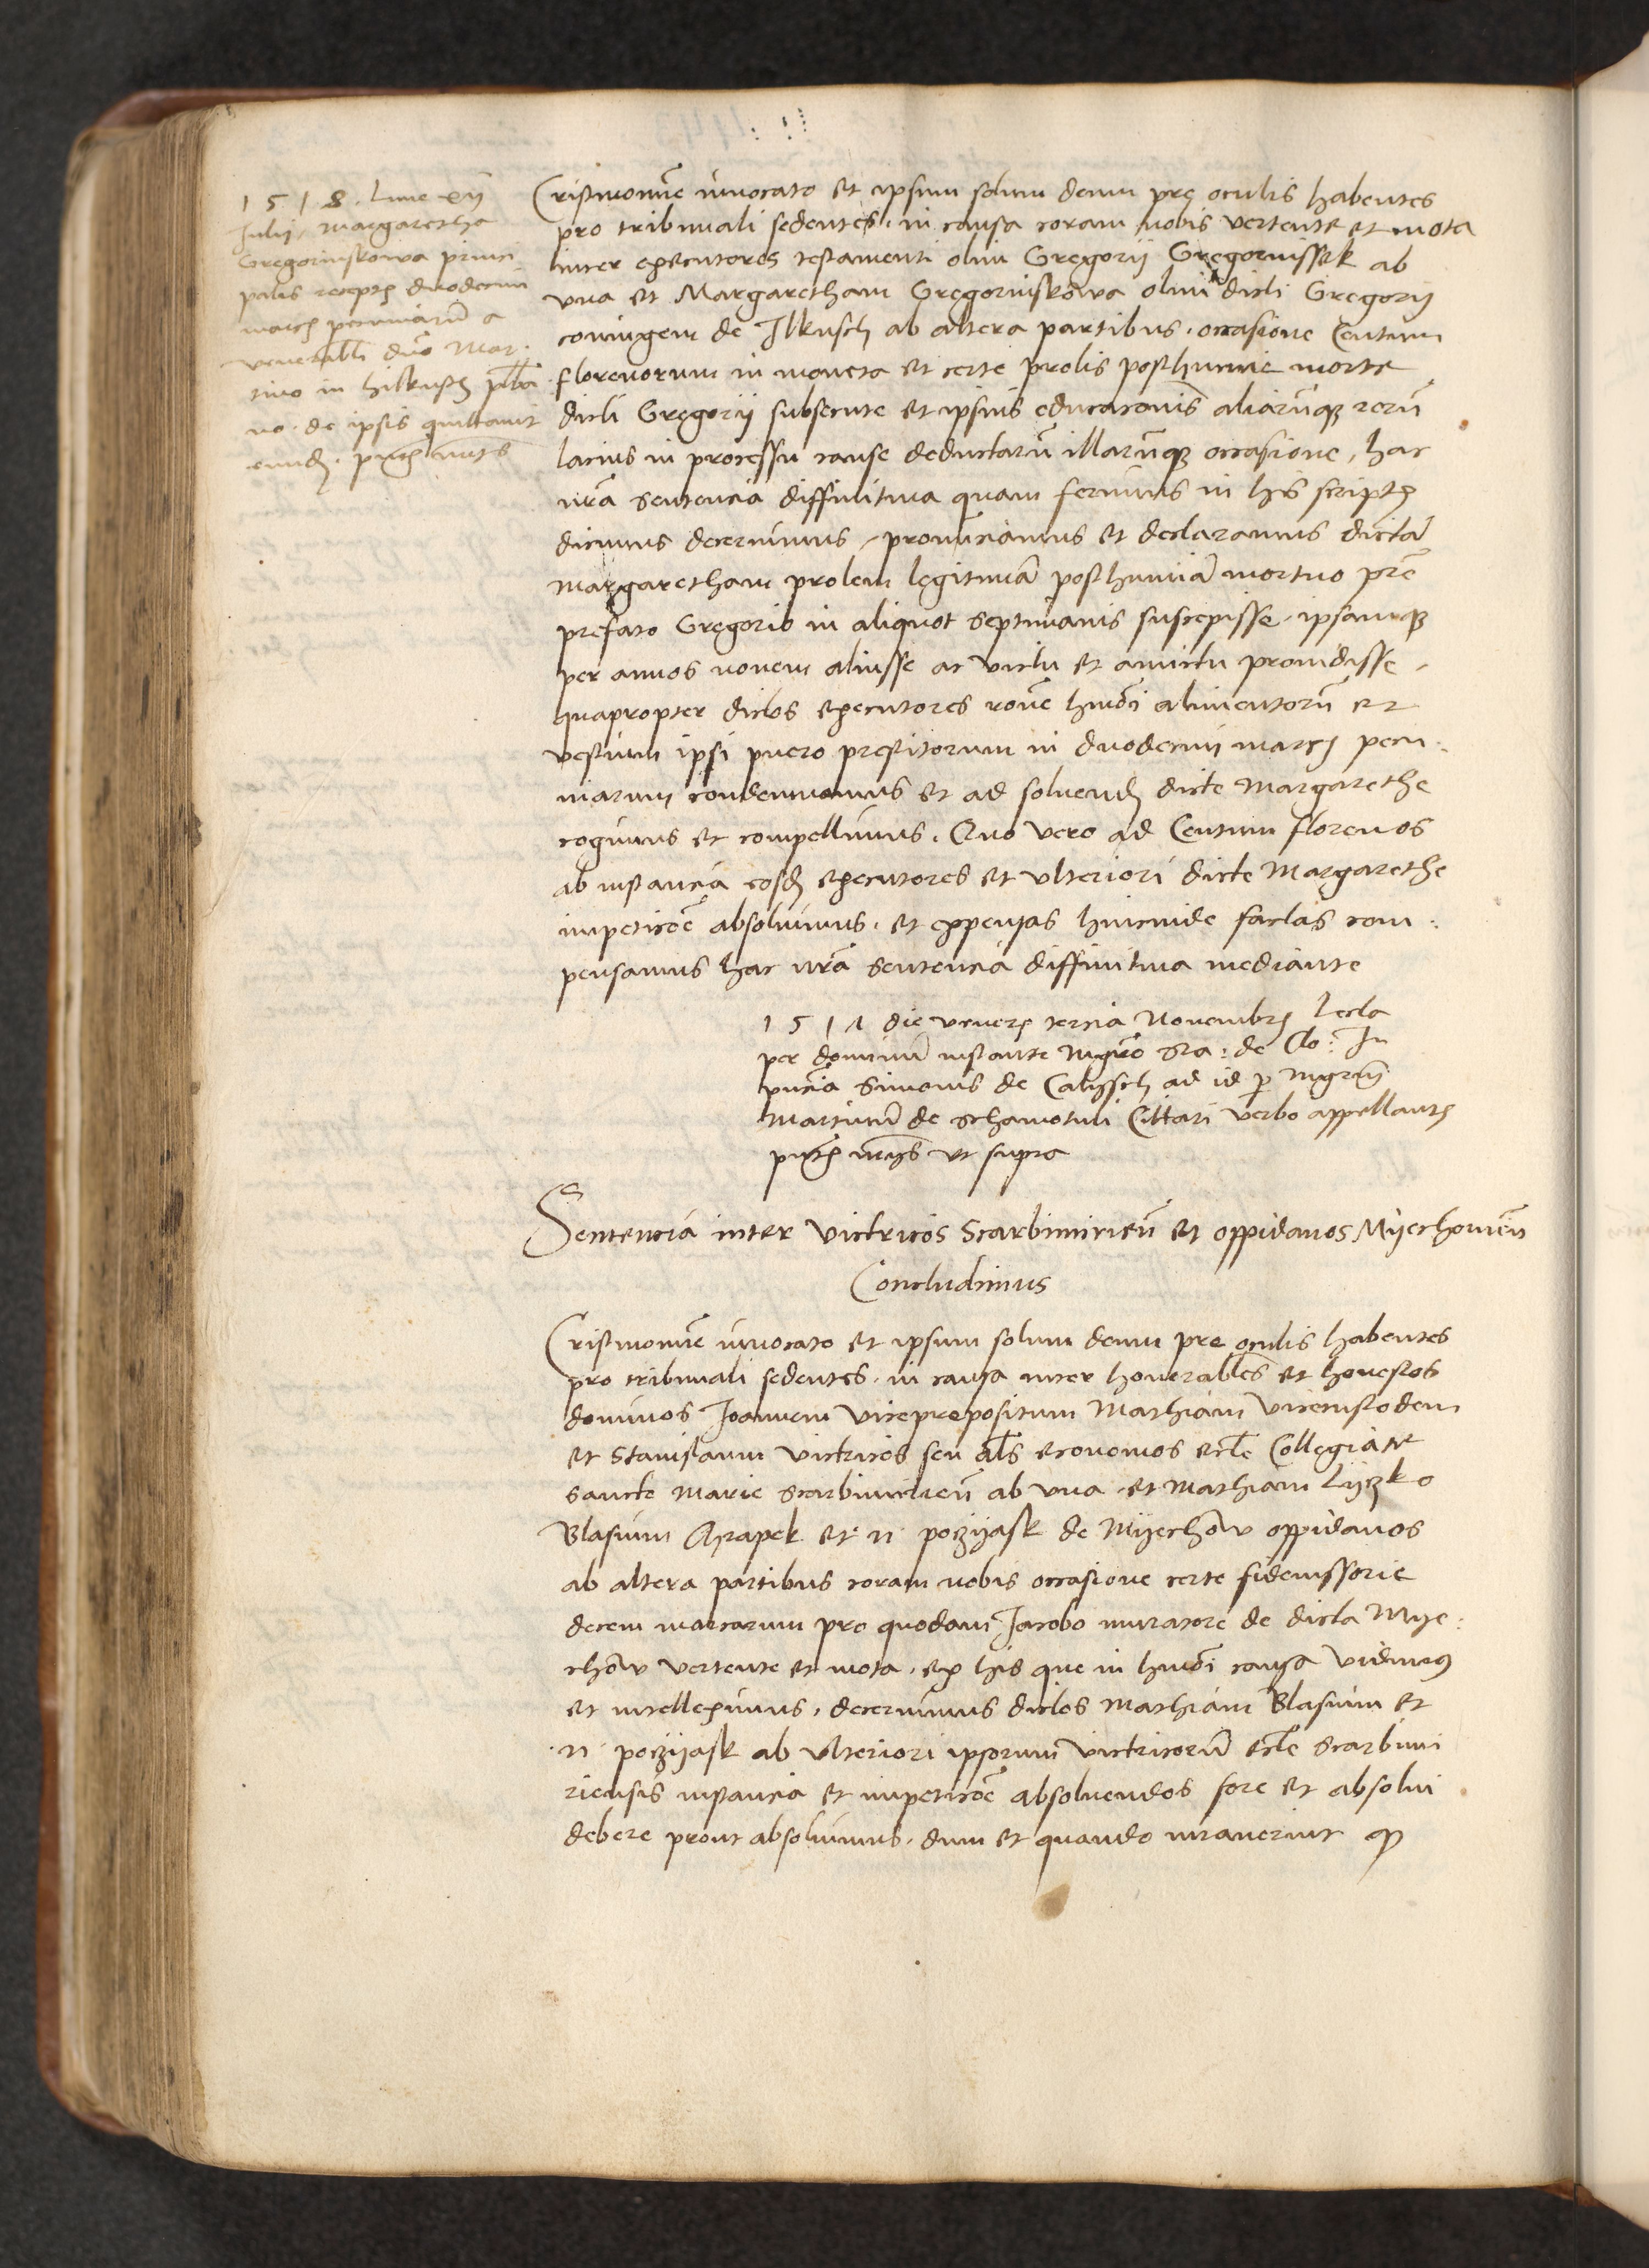 1518. Lune xij
Julij Margaretha
Gregoriuskowa princi
palis receptis duodecim
marcis pecuniarũ a
venerabli dño Mar-
tino in Hilkusch plba
no. de ipsis quittauit
eundẽ. pñtibus
Cristi nomĩe inuocato et ipsum solum deum pre oculis habentes
pro tribunali sedentes. in causa coram nobis vertente et mota
inter executores testamenti olim Gregorij Gregoruissek ab
vna et Margaretham Gregoriuskowa olim dicti Gregorij
coniugem de Ilkusch ab altera partibus. occasione Centum
florenorum in moneta et certe prolis posthumie morte
dicti Gregorij subsecute et ipsius educacionis aliarũque rerũ
lacius in processu cause deductarũ illarũque occasione, hac
nrã sentencia diffinitiua quam ferimus in his scriptis
dicimus decernimus, pronũciamus et declaramus dictã
Margaretham prolem legitimã posthumiã mortuo prẽ
prefato Gregorio in aliquot septimanis suscepisse. ipsamque
per annos novem aluisse ac victu et amictu prouidisse,
quapropter dictos executores rõne hmõi alimentorũ et
vestium ipsi puero prestitorum in duodecim marcis pecu:
niarum condemnamus et ad soluendum dicte Margarethe
cogimus et compellimus. Quo vero ad Centum florenos
ab instancia eosdem executores et vlteriori dicte Margarethe
impeticõe absoluimus. et expensas hincinde factas com:
pensamus hac nrã sentencia diffinitiua mediante
1511 die veneris tercia Novembris Lecta
per dominũ instante Mgrõ Sta: de Clo: In
pñcia Simonis de Calyssch ad id p Mgrum
Martinũ de Schamotuli Cittati verbo appellantis
pñtibus vt supra
Sentencia inter Victricos Scarbimirieñ et oppidanos Myechouieñ
Concludimus
Cristi nomĩe inuocato et ipsum solum deum pre oculis habentes
pro tribunali sedentes. in causa inter honorabiles et honestos
dominos Joannem Viceprepositum Mathiam Vicecustodem
et Stanislaum Victricos seu als economos eccle Collegiate
sancte Marie Scarbimirieñ ab vna. et Mathiam Lyczko
Blasium Chrapek et N poczyask de Myechow oppidanos
ab altera partibus coram nobis occasione certe fideiussorie
decem marcarum pro quodam Jacobo muratore de dicta Mye:
chow vertente et mota. ex his que in hmõi causa vidimus
et intelleximus. decernimus dictos Mathiam Blasium et
N poczyask ab vlteriori ipsorum victricorũ eccle Scarbimi
riensis instancia et impeticõe absoluendos fore et absolui
debere prout absoluimus. dum et quando iurauerint q